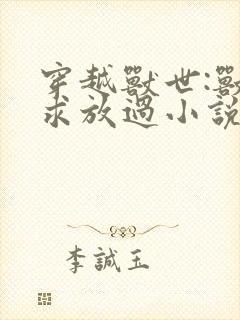 穿越獸世:獸
求放過小說
李誠玉